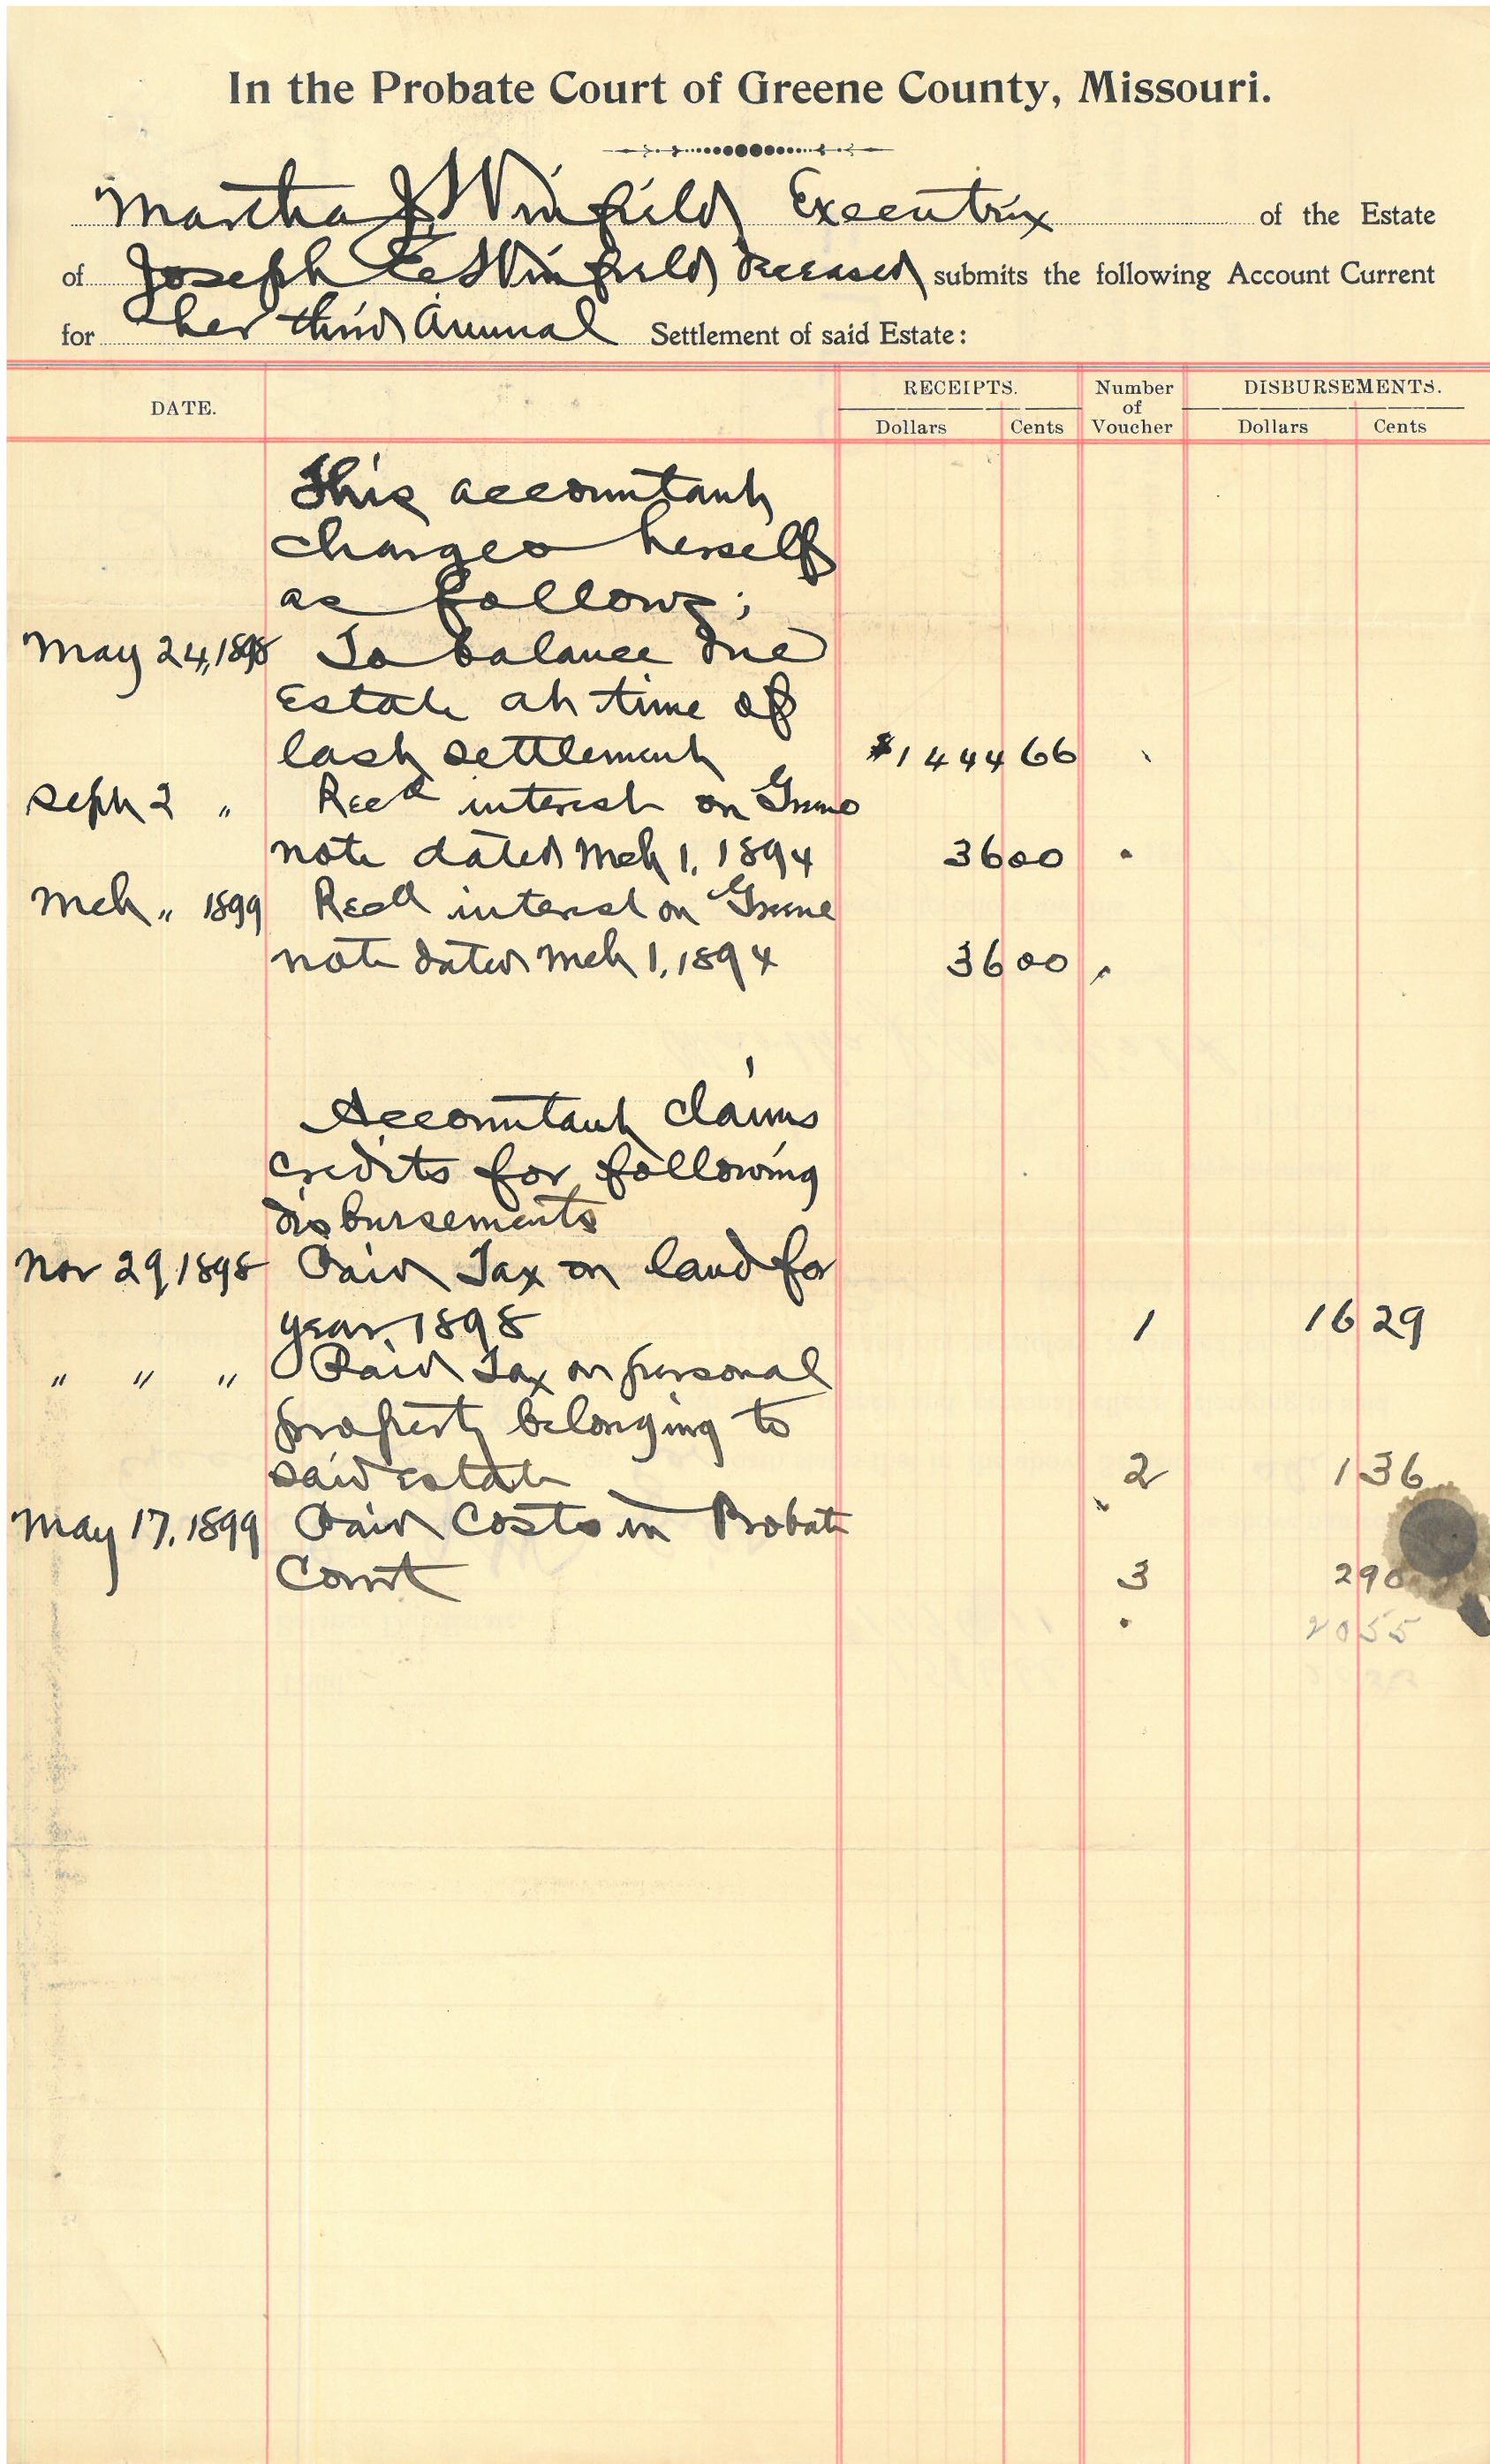 In the Probate Court of Greene County, Missouri.
Martha J Winfield Executrix of the Estate
of Joseph E Winfield deceased submits the following Account Current
for her third Annual Settlement of said Estate:
DATE. RECEIPTS. Number of Voucher DISBURSEMENTS.
Dollars Cents Dollars Cents
This accountant
charges herself
as follows;
May 24, 1898 To balance due
Estate at time of
last settlement $1444 66
Sept 2 " Recd interest on Greene
note dated Mch 1, 1894 36 00
Mch " 1899 Recd interest on Greene
note dated Mch 1, 1894 36 00
Accountant claims
credits for following
disbursements
Nov 29, 1898 Paid Tax on land for
year 1898 1 16 29
" " " Paid Tax on personal
property belonging to
said estate 2 1 36
May 17, 1899 Paid Costs in Probate
Court 3 2 90
20 55